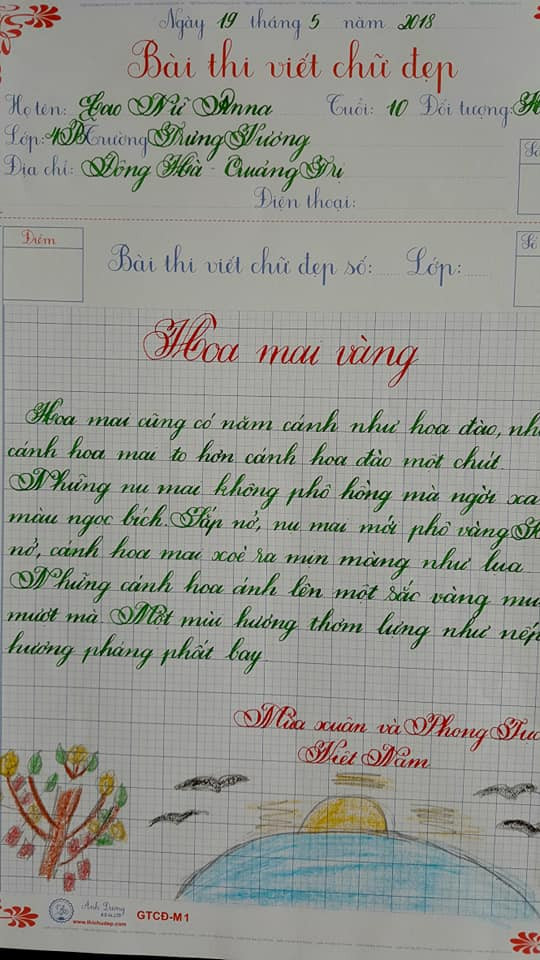 Ngày 19 tháng 5 năm 2018
Bài thi viết chữ đẹp
Họ tên: Cao Nữ Anna Tuổi: 10 Đối tượng: H
Lớp: 4B Trường Trưng Vương
Địa chỉ: Đông Hà - Quảng Trị
Điện thoại:
Điểm
Bài thi viết chữ đẹp số: Lớp:
Số
Hoa mai vàng
Hoa mai cũng có năm cánh như hoa đào, nh
cánh hoa mai to hơn cánh hoa đào một chút.
Những nụ mai không phô hồng mà ngời xa
màu ngọc bích. Sắp nở, nụ mai mới phô vàng
nở, cánh hoa mai xoè ra mịn màng như lụa
Những cánh hoa ánh lên một sắc vàng mu
mượt mà. Một mùi hương thơm lựng như nếp
hương phảng phất bay.
Mùa xuân và Phong Tục
Việt Nam
Ánh Dương
GTCĐ-M1
www.thichudep.com